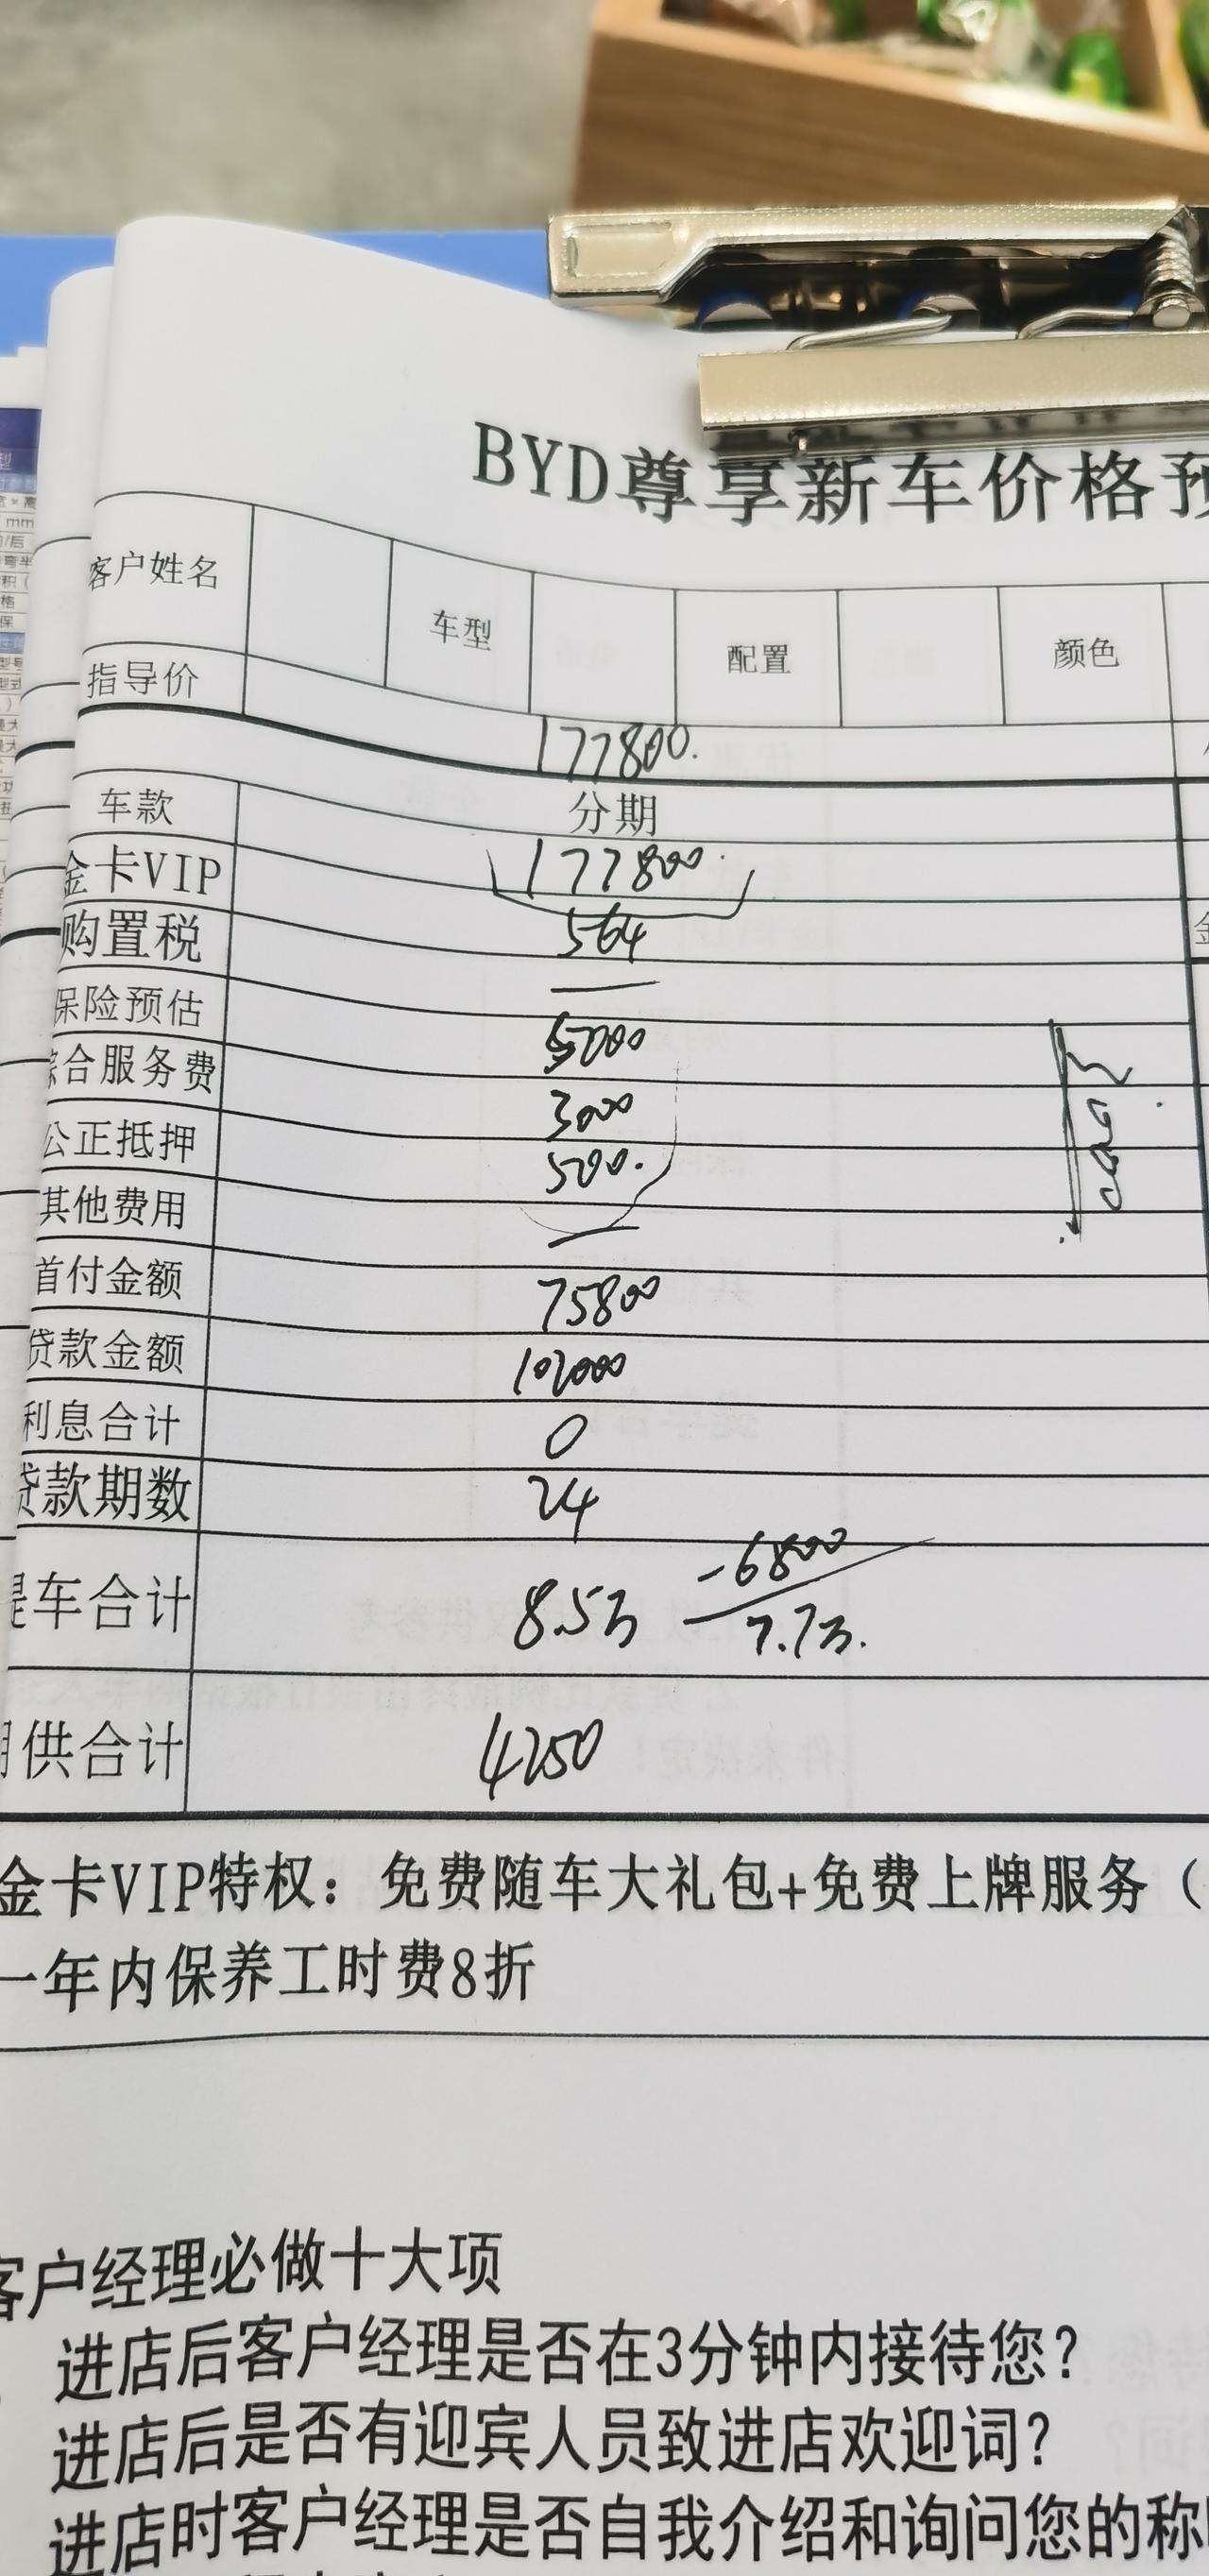 BYD尊享新车价格预
客户姓名 车型 配置 颜色
指导价 177800.
分期
车款 177800.
金卡VIP 564
购置税 —
保险预估 5000
综合服务费 3000
公正抵押 500.
其他费用 —
首付金额 75800
贷款金额 102000
利息合计 0
贷款期数 24
提车合计 8.5万 -6800
7.7万.
月供合计 4250
金卡VIP特权：免费随车大礼包+免费上牌服务（
一年内保养工时费8折
客户经理必做十大项
进店后客户经理是否在3分钟内接待您？
进店后是否有迎宾人员致进店欢迎词？
进店时客户经理是否自我介绍和询问您的称